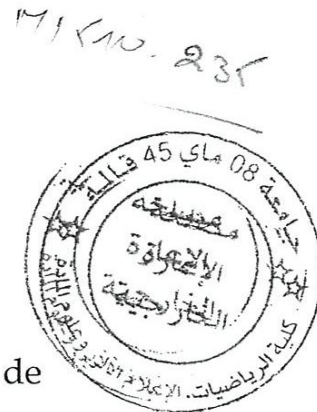 M/510.235
جامعة 08 ماي 45 قالمة
مصلحة
الإعارة
الخارجية
كلية الرياضيات، الإعلام الآلي وعلوم المادة
de